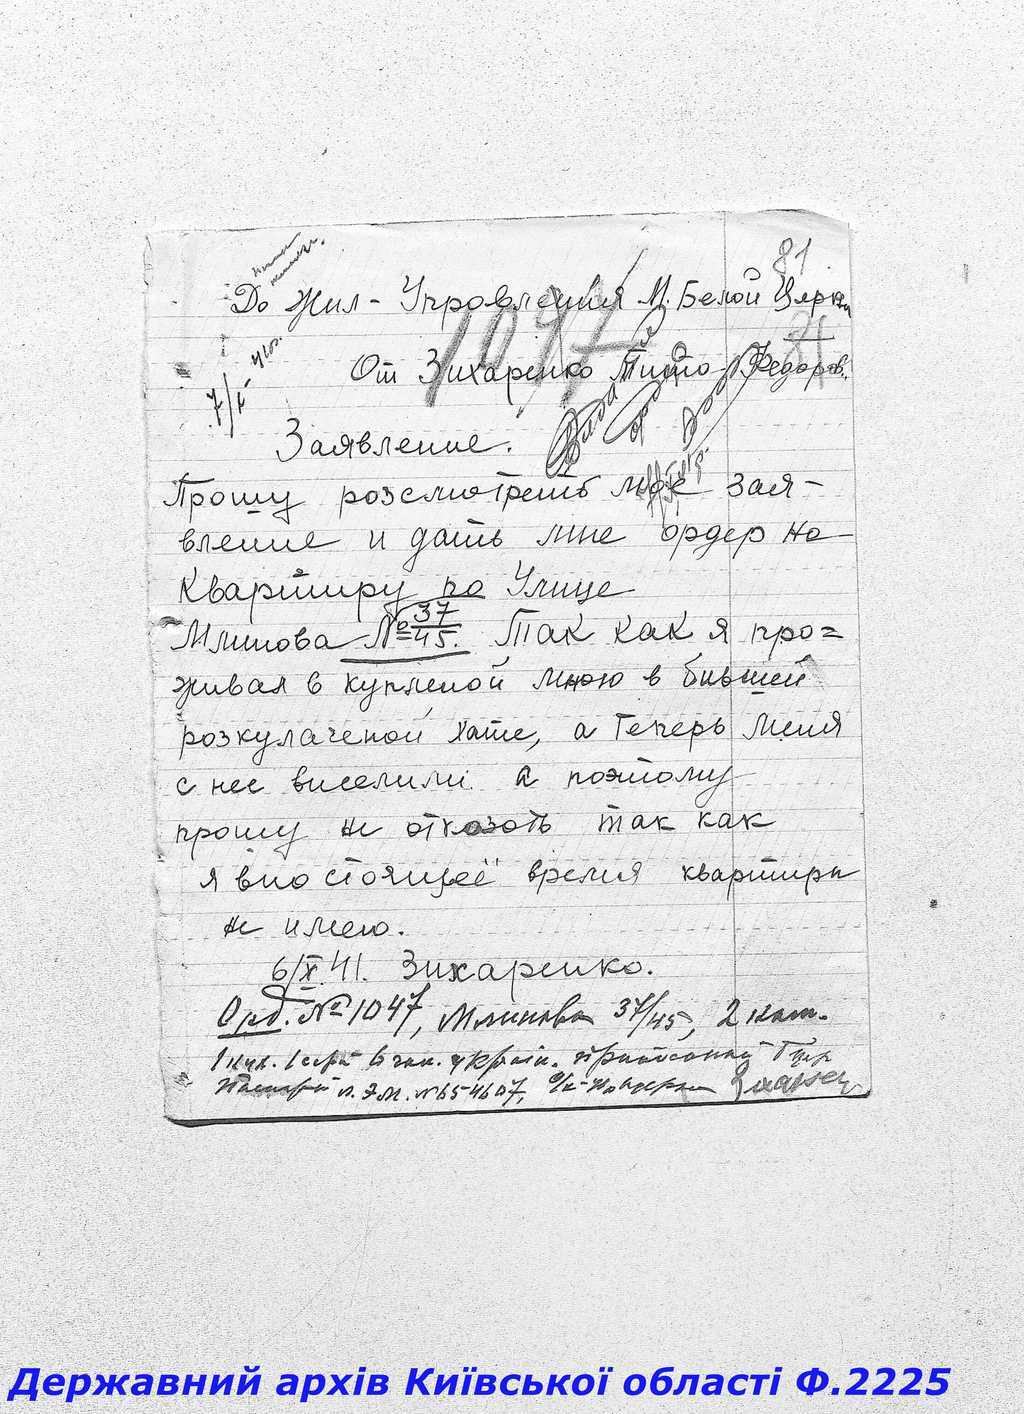 81
До Жил-Упровления М. Белой Церкви
1047
От Захаренко Тито Федоров.
7/X
Заявление.
Прошу розсмотреть мое зая-
вление и дать мне ордер на
квартиру по Улице
Млинова № 37/45. Так как я про=
живал в купленой мною в бившей
розкулаченой хате, а теперь меня
с нее виселили а поэтому
прошу не отказать так как
я внастоящеё время квартири
не имею.
6/X 41. Захаренко.
Орд. № 1047, Млинова 37/45, 2 кат.
1 кух. україн.
№654607,
Державний архів Київської області Ф.2225